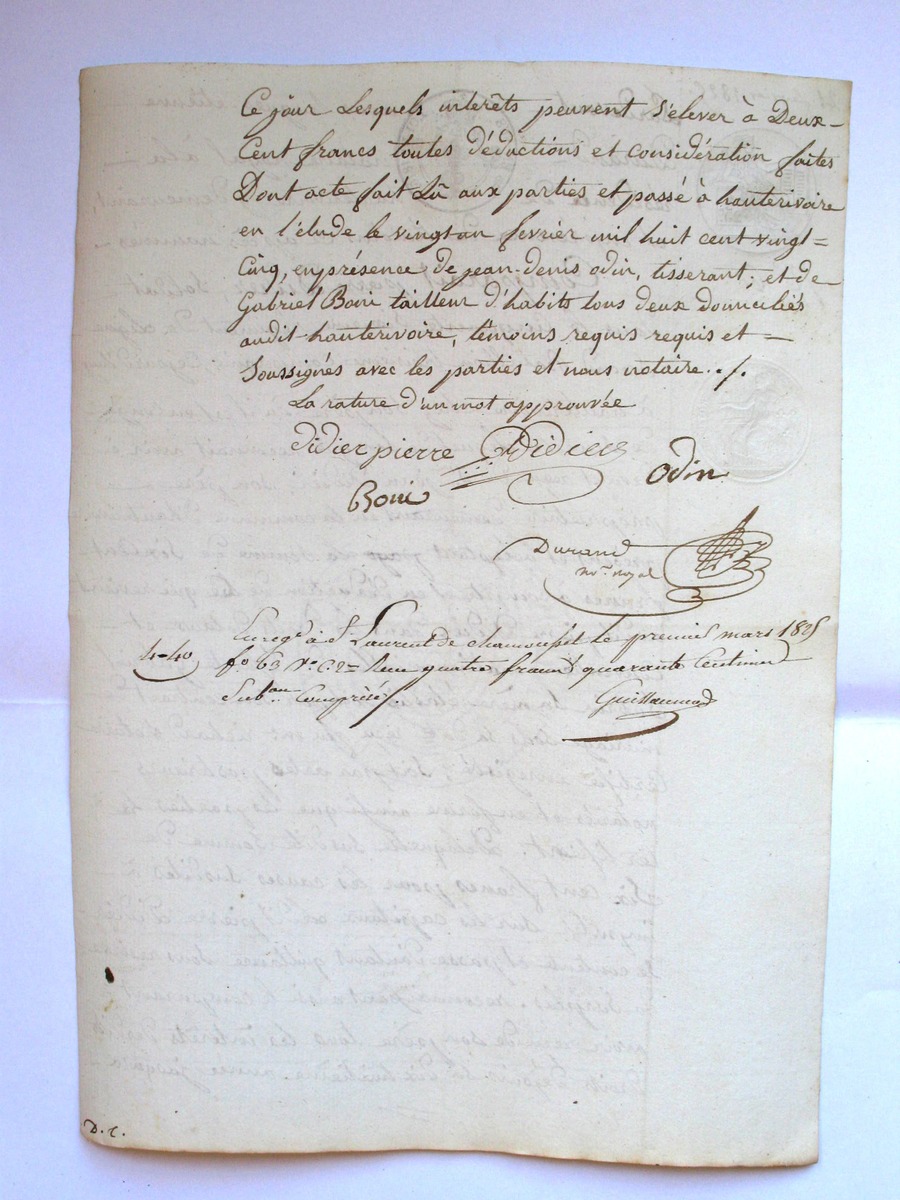 Ce jour Lesquels interêts peuvent S'elever à Deux-
Cent francs toutes déductions et considération faites
Dont acte fait Lû aux parties et passé à hauterivoire
en l'étude le vingt un fevrier mil huit cent vingt=
Cinq, en présence de jean-denis odin, tisserant; et de
Gabriel Boni tailleur d'habits tous deux domiciliés
audit hauterivoire, témoins requis requis et =
Soussignés avec les parties et nous notaire ./.
La rature d'un mot approuvée
didier pierre Didier
Odin
Boni
Durand
no.re royal
Enreg.é à S.t Laurent de chamousset le premier mars 1825
4-40
f.o 63 v.o C. 2= Reçu quatre francs quarante Centimes
Sub.on Comprise
Guillaumond
D. C.